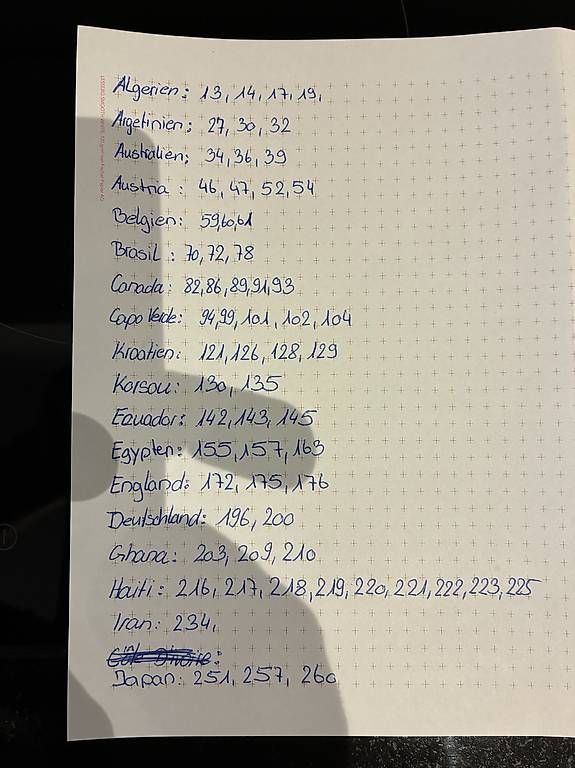 Algerien: 13, 14, 17, 19,
Argetinien: 27, 30, 32
Australien: 34, 36, 39
Austria : 46, 47, 52, 54
Belgien: 59,60,61
Brasil : 70, 72, 78
Canada: 82,86,89,91,93
Capo Verde: 94,99, 101, 102, 104
Kroatien: 121, 126, 128, 129
Korsou: 130, 135
Ecuador: 142, 143, 145
Egypten: 155, 157, 163
England: 172, 175, 176
Deutschland: 196, 200
Ghana: 203, 209, 210
Haiti: 216, 217, 218, 219, 220, 221, 222, 223, 225
Iran: 234,
Japan: 251, 257, 260